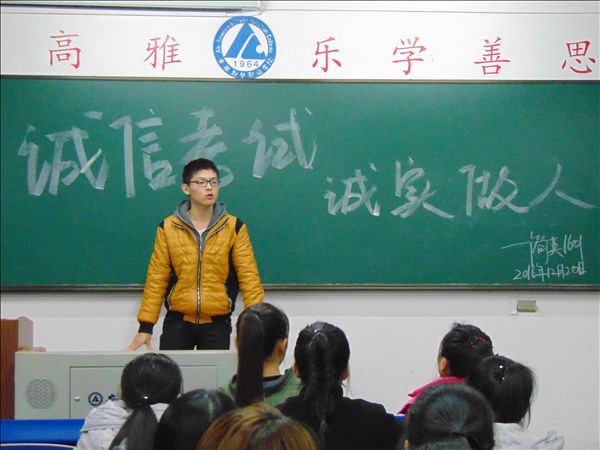 高雅 乐学善思
1964
诚信考试
诚实做人
—商英1601
2016年12月20日